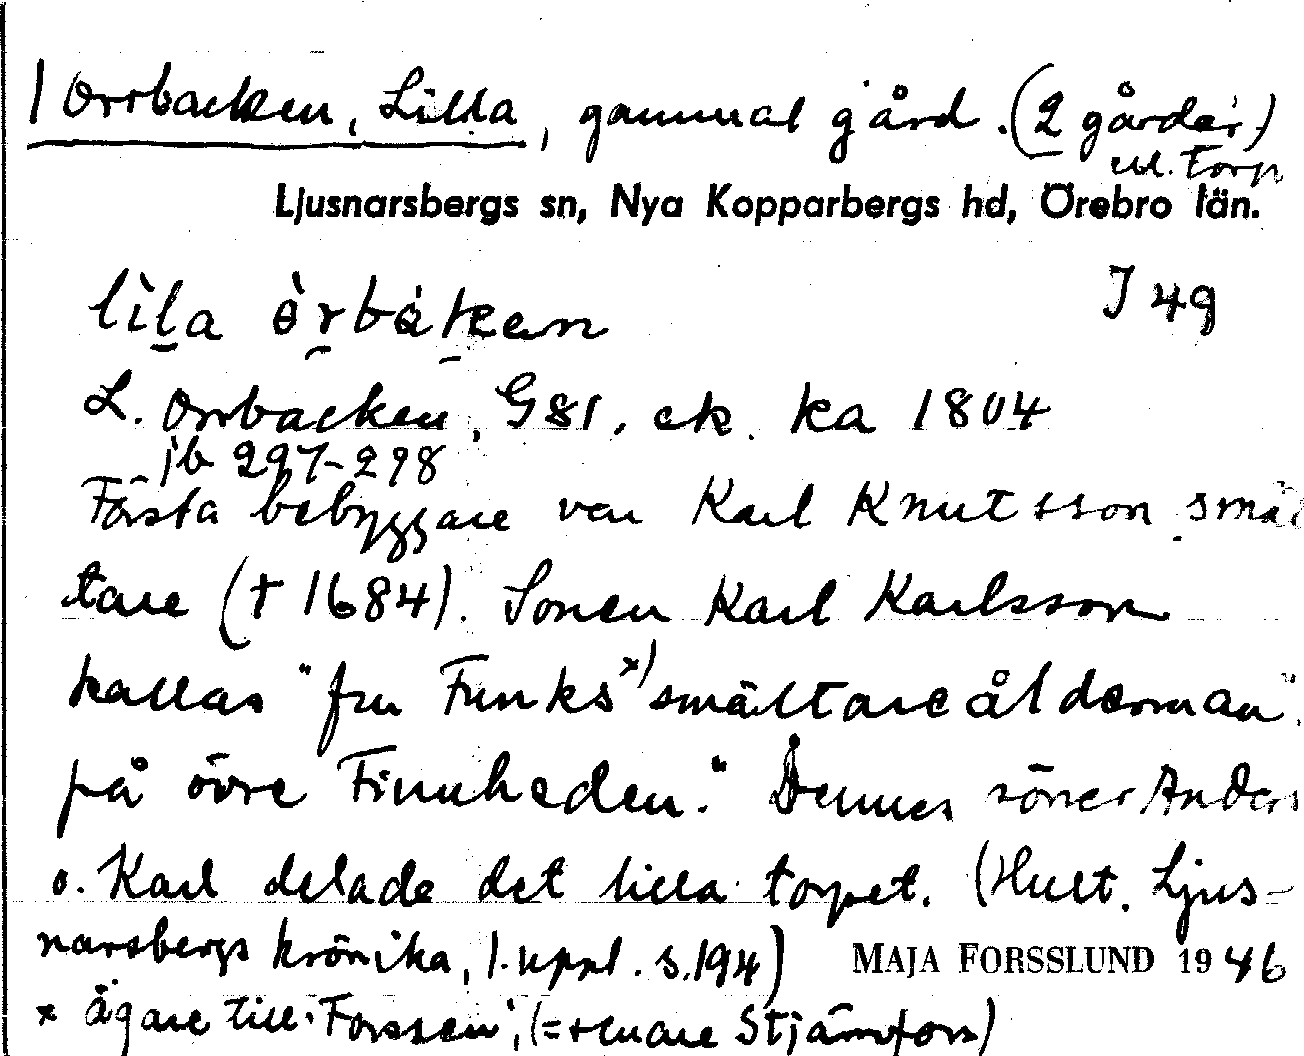 1 Orrbacken, Lilla, gammal gård. (2 gårder)
enl. Torp
Ljusnarsbergs sn, Nya Kopparbergs hd, Örebro län.
lìla òrbákean
I 49
L. Orrbacken, G81, ek. ka 1804
jb 297-298
Första bebyggare var Karl Knutsson smäl
tare († 1684). Sonen Karl Karlsson
kallas "fru Funks x) smältareålderman
på övre Finnheden." Dennes söner Anders
o. Karl delade det lilla torpet. (Hult. Ljus-
narsbergs krönika, 1. uppl. s. 194)
MAJA FORSSLUND 1946
x ägare till Forssen, (= senare Stjärnfors)